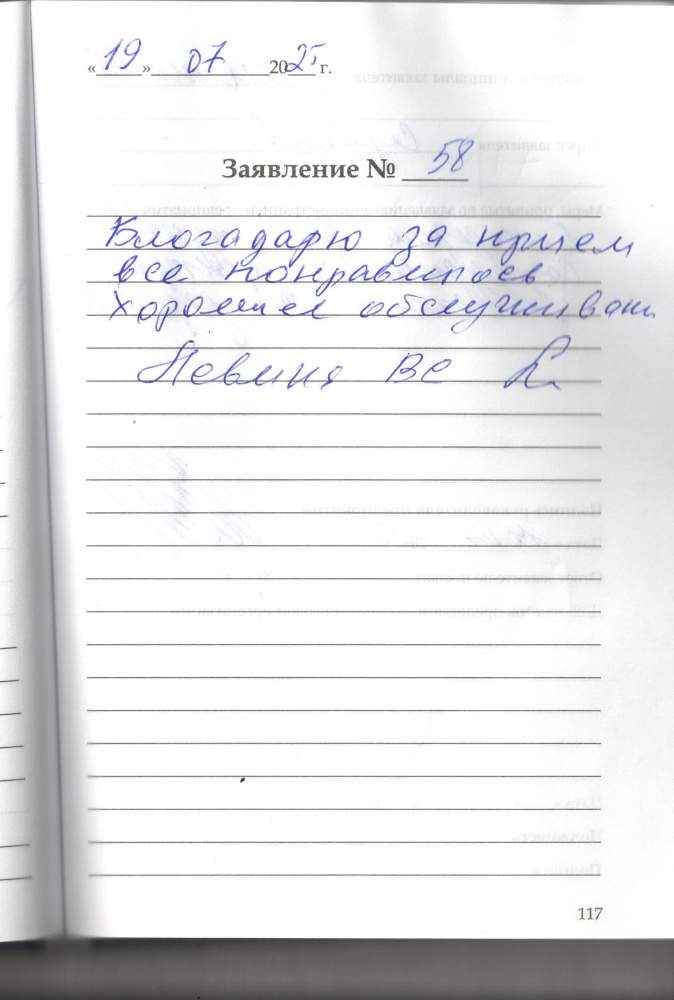 «19» 07 2025 г.
Заявление № 58
Благадарю за прием
все понравилось
хорошее обслуживани
Левина ВС
117